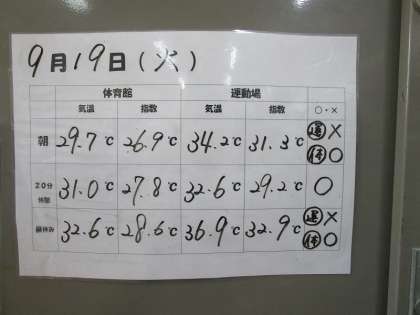 9月19日(火)
体育館 運動場
気温 指数 気温 指数 ○・×
朝 29.7℃ 26.9℃ 34.2℃ 31.3℃ 運× 体○
20分休憩 31.0℃ 27.8℃ 32.6℃ 29.2℃ ○
昼休み 32.6℃ 28.6℃ 36.9℃ 32.9℃ 運× 体○